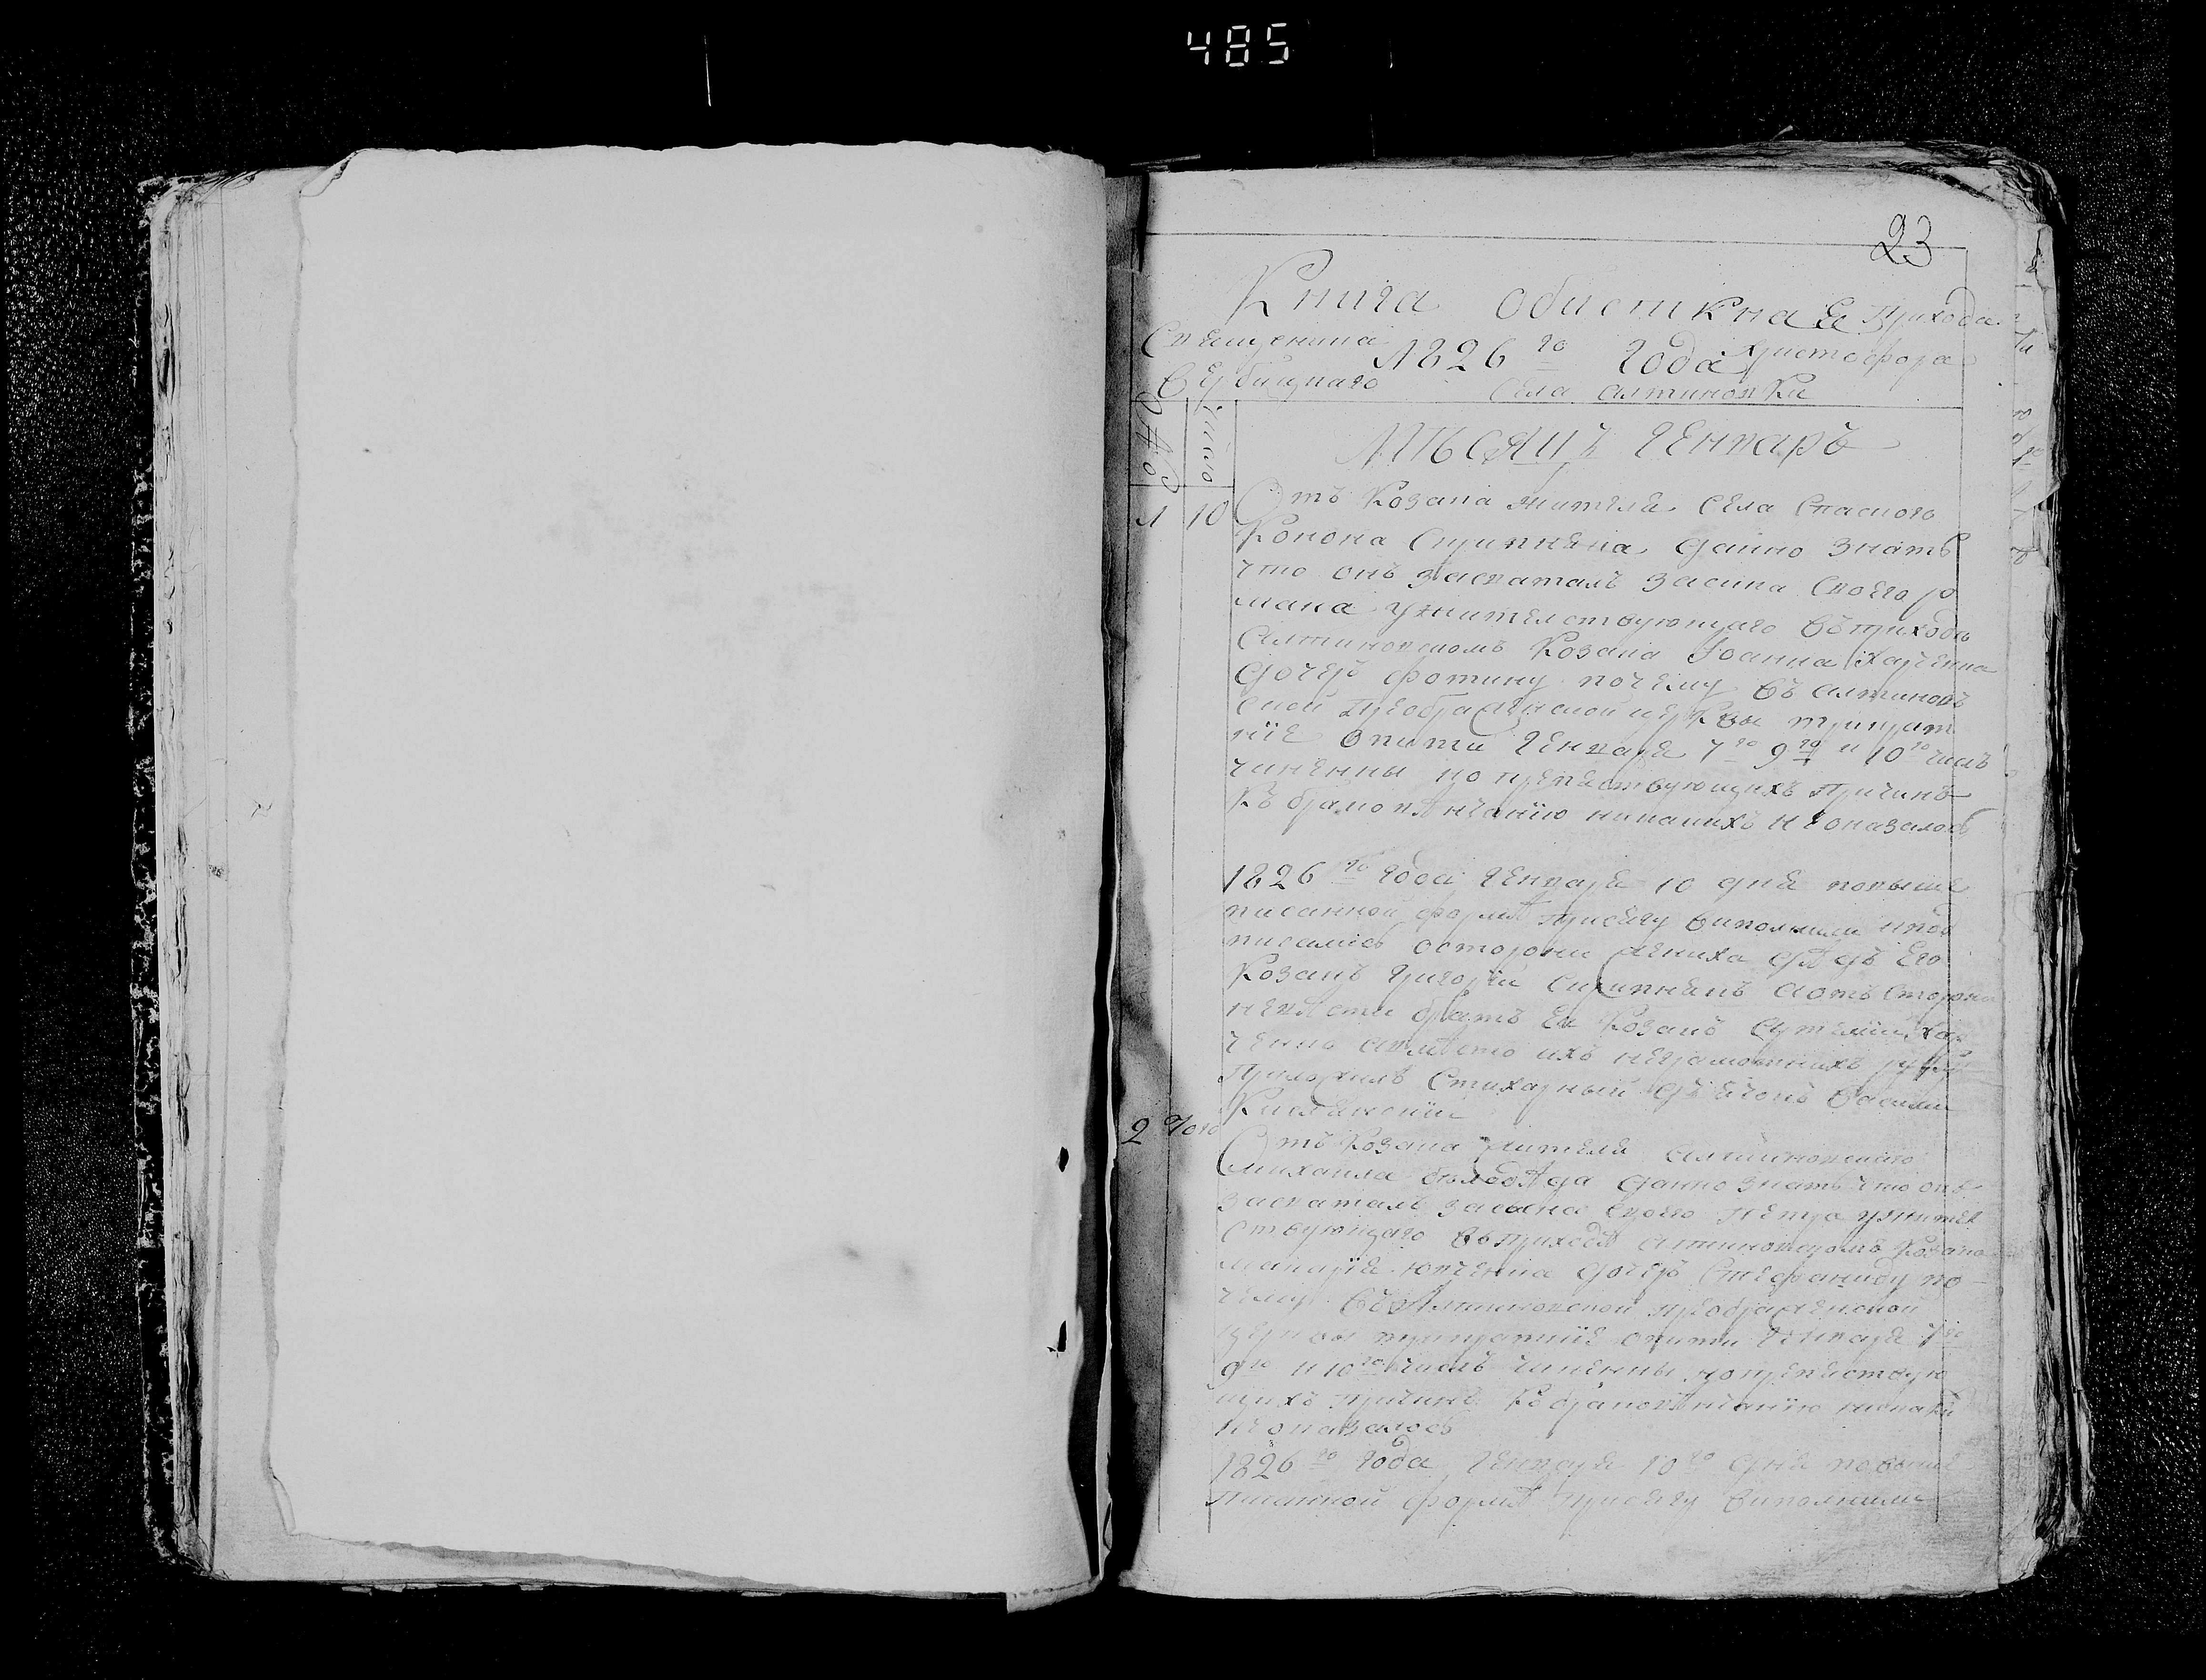 485
23
Книга обыскная Прихода
Священика Христофора
Вербицкаго 1826го года
Села Алтиновки
Число
Мѣсяцъ Генваръ
1 10 Отъ Козака жителя Села Спаского
Конона Скрипняка данно знать
что онъ засваталъ засина своего Ро
мана ужителствующаго въ приходѣ
Алтиновскомъ Козака Іоанна Харченка
дочеръ Фотину почему въ Алтинов
ской Преображенской церквы трикрат
ніе опити Генваря 7го 9го и 10го числъ
чиненны но препятствующихъ причинъ
Къ браковѣнчанію никакихъ не оказалось
1826го года Генваря 10 дня повыше
писанной формѣ присягу виполнили и под
писались состороны жениха дядъ Его
Козакъ Григорій Скрипнякъ а отъ Сторони
невѣсти братъ Ея Козакъ Хар
ченко авмѣсто ихъ неграмотнихъ руку
Приложилъ Стихарный дьячокъ Василий
2 Того
Отъ Козака жителя Алтиновского
Михаила данно знать что онъ
засваталъ засына своего Петра ужител
ствующаго въ приходѣ Алтиновскомъ Козака
Макарія Юрченка дочеръ Стефаниду по
чему въ Алтиновской Преображенской
церквы трикратніе опити Генваря 7го
9го и 10го числъ чиненны но препятствую
щихъ причинъ Къ браковѣнчанію никаки
не оказалось
1826го года Генваря 10го дня повыше
писанной формѣ присягу виполнили